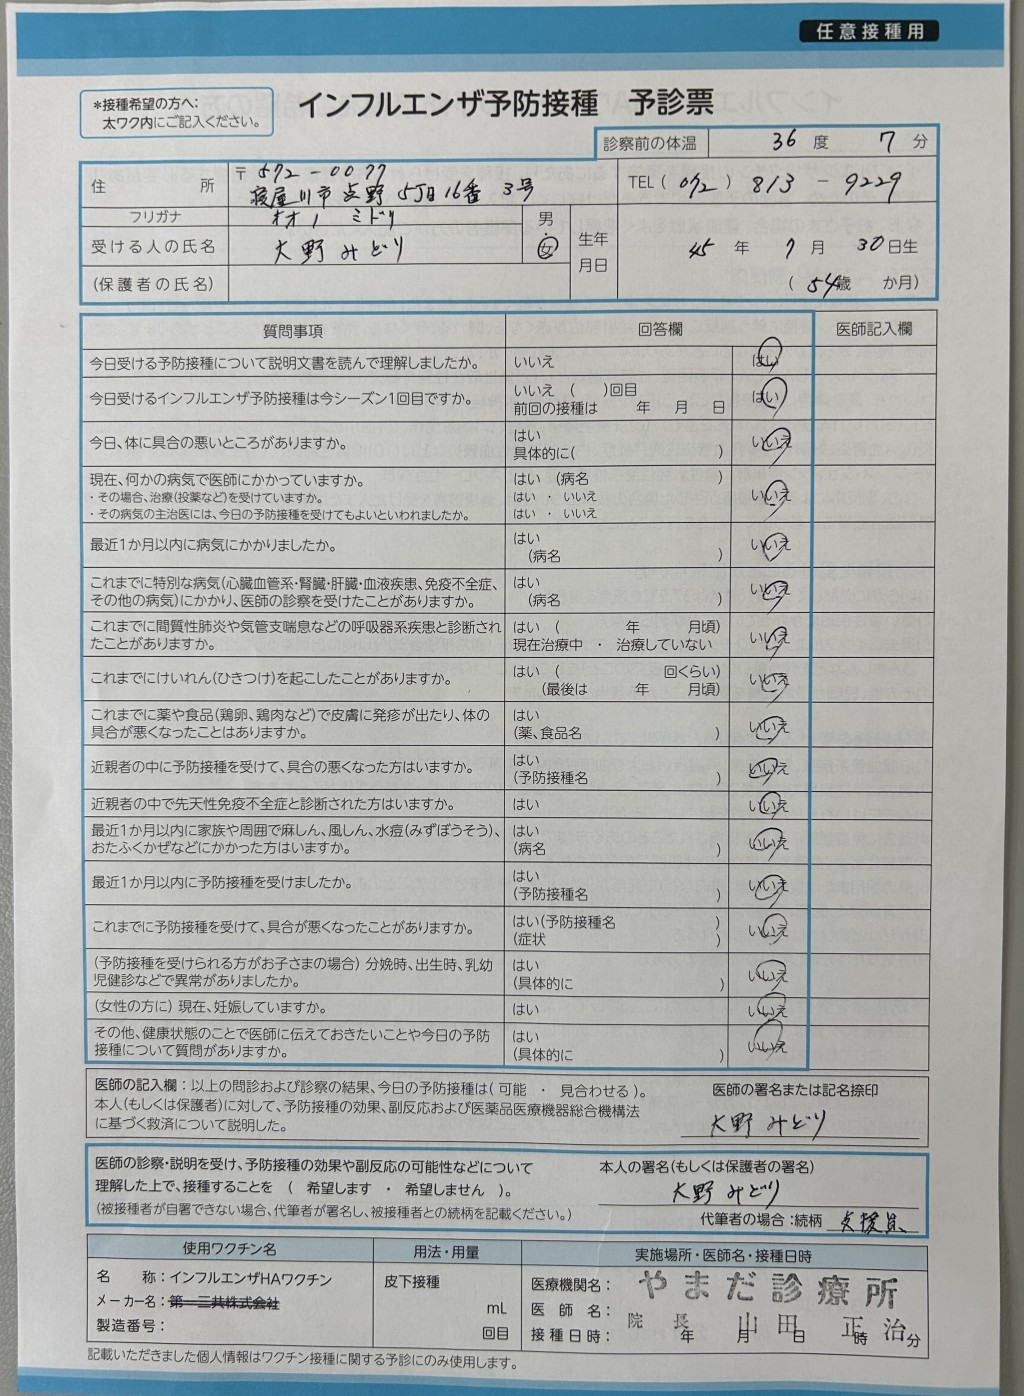 任意接種用
*接種希望の方へ:
太ワク内にご記入ください。
インフルエンザ予防接種 予診票
診察前の体温 36 度 7 分
住所 〒572-0077
寝屋川市点野5丁目16番3号
TEL(072)813-9229
フリガナ オオノ ミドリ
受ける人の氏名 大野みどり
男・女
生年月日 45年7月30日生
(54歳 か月)
(保護者の氏名)
質問事項 回答欄 医師記入欄
今日受ける予防接種について説明文書を読んで理解しましたか。 いいえ はい
今日受けるインフルエンザ予防接種は今シーズン1回目ですか。 いいえ ( )回目 はい
前回の接種は 年 月 日
今日、体に具合の悪いところがありますか。 はい いいえ
具体的に( )
現在、何かの病気で医師にかかっていますか。 はい (病名 ) いいえ
・その場合、治療(投薬など)を受けていますか。 はい ・ いいえ
・その病気の主治医には、今日の予防接種を受けてもよいといわれましたか。 はい ・ いいえ
最近1か月以内に病気にかかりましたか。 はい いいえ
(病名 )
これまでに特別な病気(心臓血管系・腎臓・肝臓・血液疾患、免疫不全症、 はい いいえ
その他の病気)にかかり、医師の診察を受けたことがありますか。 (病名 )
これまでに間質性肺炎や気管支喘息などの呼吸器系疾患と診断され はい ( 年 月頃) いいえ
たことがありますか。 現在治療中 ・ 治療していない
これまでにけいれん(ひきつけ)を起こしたことがありますか。 はい ( 回くらい) いいえ
(最後は 年 月頃)
これまでに薬や食品(鶏卵、鶏肉など)で皮膚に発疹が出たり、体の はい いいえ
具合が悪くなったことはありますか。 (薬、食品名 )
近親者の中に予防接種を受けて、具合の悪くなった方はいますか。 はい いいえ
(予防接種名 )
近親者の中で先天性免疫不全症と診断された方はいますか。 はい いいえ
最近1か月以内に家族や周囲で麻しん、風しん、水痘(みずぼうそう)、 はい いいえ
おたふくかぜなどにかかった方はいますか。 (病名 )
最近1か月以内に予防接種を受けましたか。 はい いいえ
(予防接種名 )
これまでに予防接種を受けて、具合が悪くなったことがありますか。 はい(予防接種名 ) いいえ
(症状 )
(予防接種を受けられる方がお子さまの場合) 分娩時、出生時、乳幼 はい いいえ
児健診などで異常がありましたか。 (具体的に )
(女性の方に) 現在、妊娠していますか。 はい いいえ
その他、健康状態のことで医師に伝えておきたいことや今日の予防 はい いいえ
接種について質問がありますか。 (具体的に )
医師の記入欄:以上の問診および診察の結果、今日の予防接種は(可能 ・ 見合わせる)。 医師の署名または記名捺印
本人(もしくは保護者)に対して、予防接種の効果、副反応および医薬品医療機器総合機構法
に基づく救済について説明した。 大野みどり
医師の診察・説明を受け、予防接種の効果や副反応の可能性などについて 本人の署名(もしくは保護者の署名)
理解した上で、接種することを ( 希望します ・ 希望しません )。 大野みどり
(被接種者が自署できない場合、代筆者が署名し、被接種者との続柄を記載ください。) 代筆者の場合:続柄 支援員
使用ワクチン名 用法・用量 実施場所・医師名・接種日時
名 称:インフルエンザHAワクチン 皮下接種 医療機関名: やまだ診療所
メーカー名:第一三共株式会社 mL 医師名: 院長 山田 正治
製造番号: 回目 接種日時: 年 月 日 時 分
記載いただきました個人情報はワクチン接種に関する予診にのみ使用します。